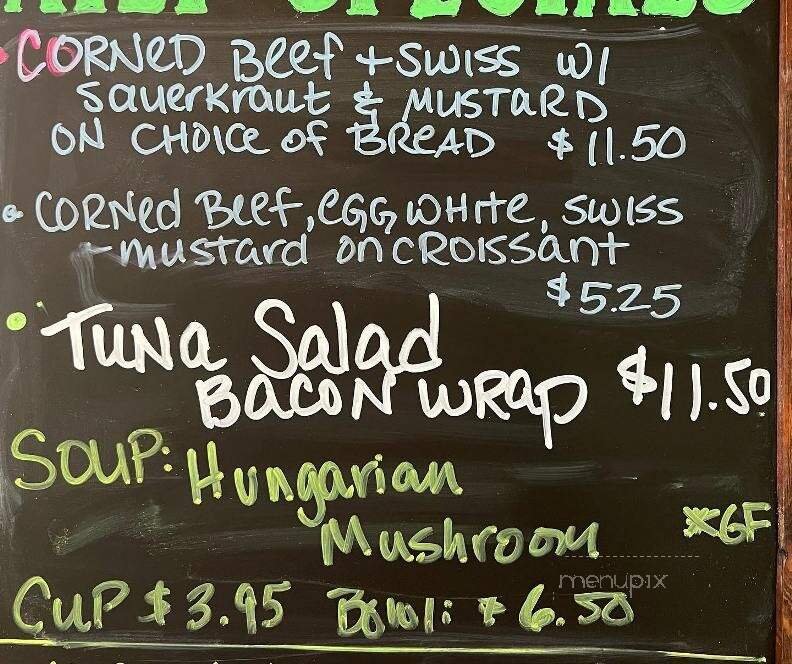 DAILY SPECIALS
CORNED Beef + SWISS w/
Sauerkraut & MUSTARD
ON CHOICE of BREAD $11.50
• CORNed Beef, eGG WHite, SWISS
mustard on CROISSant
$5.25
• TUNa Salad
BACON WRap $11.50
SOUP: Hungarian
Mushroom *GF
CUP $3.95 Bowl: $6.50
menupix